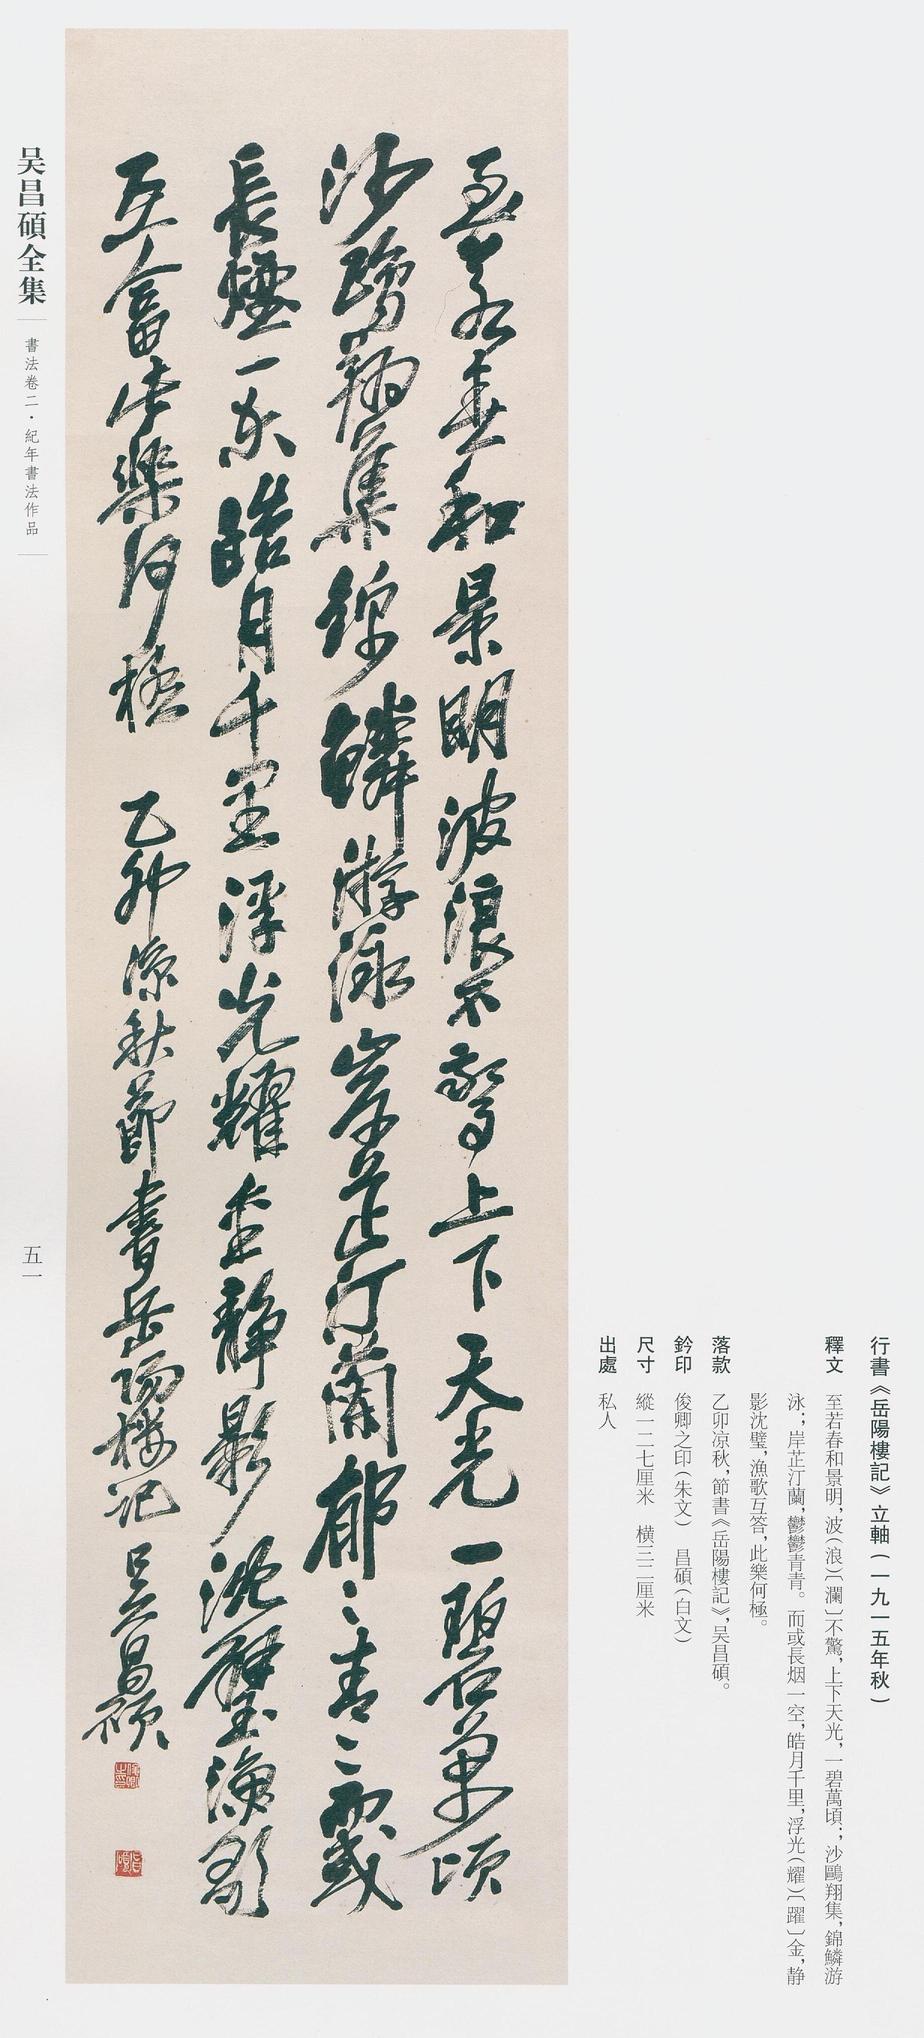 行書《岳陽樓記》立軸(一九一五年秋)
釋文 至若春和景明,波(浪)〔瀾〕不驚,上下天光,一碧萬頃;沙鷗翔集,錦鱗游
泳;岸芷汀蘭,鬱鬱青青。而或長烟一空,皓月千里,浮光(耀)〔躍〕金,静
影沈璧,漁歌互答,此樂何極。
落款 乙卯凉秋,節書《岳陽樓記》,吴昌碩。
鈐印 俊卿之印(朱文) 昌碩(白文)
尺寸 縱一二七厘米 橫三二厘米
出處 私人
至若春和景明波浪不驚上下天光一碧萬頃
沙鷗翔集錦鱗游泳岸芷汀蘭郁〻青〻而或
長煙一空皓月千里浮光耀金静影沈璧漁歌
互答此樂何極 乙卯凉秋節書岳陽樓記 吴昌碩
俊卿之印
昌碩
吴昌碩全集
書法卷二·紀年書法作品
五一